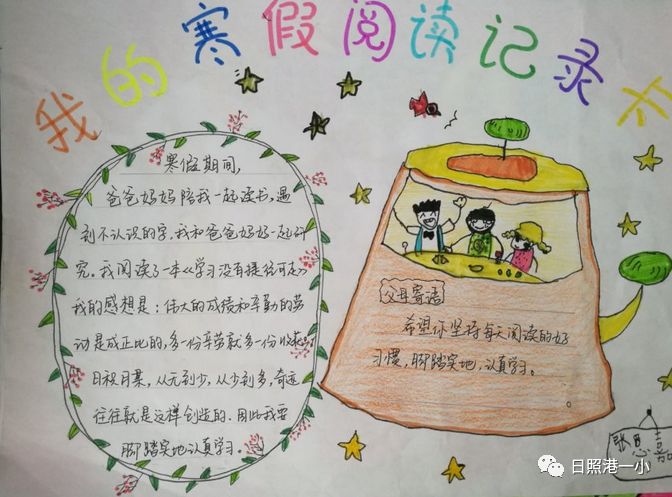 我的寒假阅读记录卡
寒假期间，
爸爸妈妈陪我一起读书，遇
到不认识的字，我和爸爸妈妈一起研
究。我阅读了一本《学习没有捷径可走》
我的感想是：伟大的成绩和辛勤的劳
动是成正比的，多一份辛劳就多一份收获。
日积月累，从无到少，从少到多，奇迹
往往就是这样创造的。因此我要
脚踏实地认真学习。
父母寄语
希望你坚持每天阅读的好
习惯，脚踏实地，认真学习。
张恩嘉
日照港一小